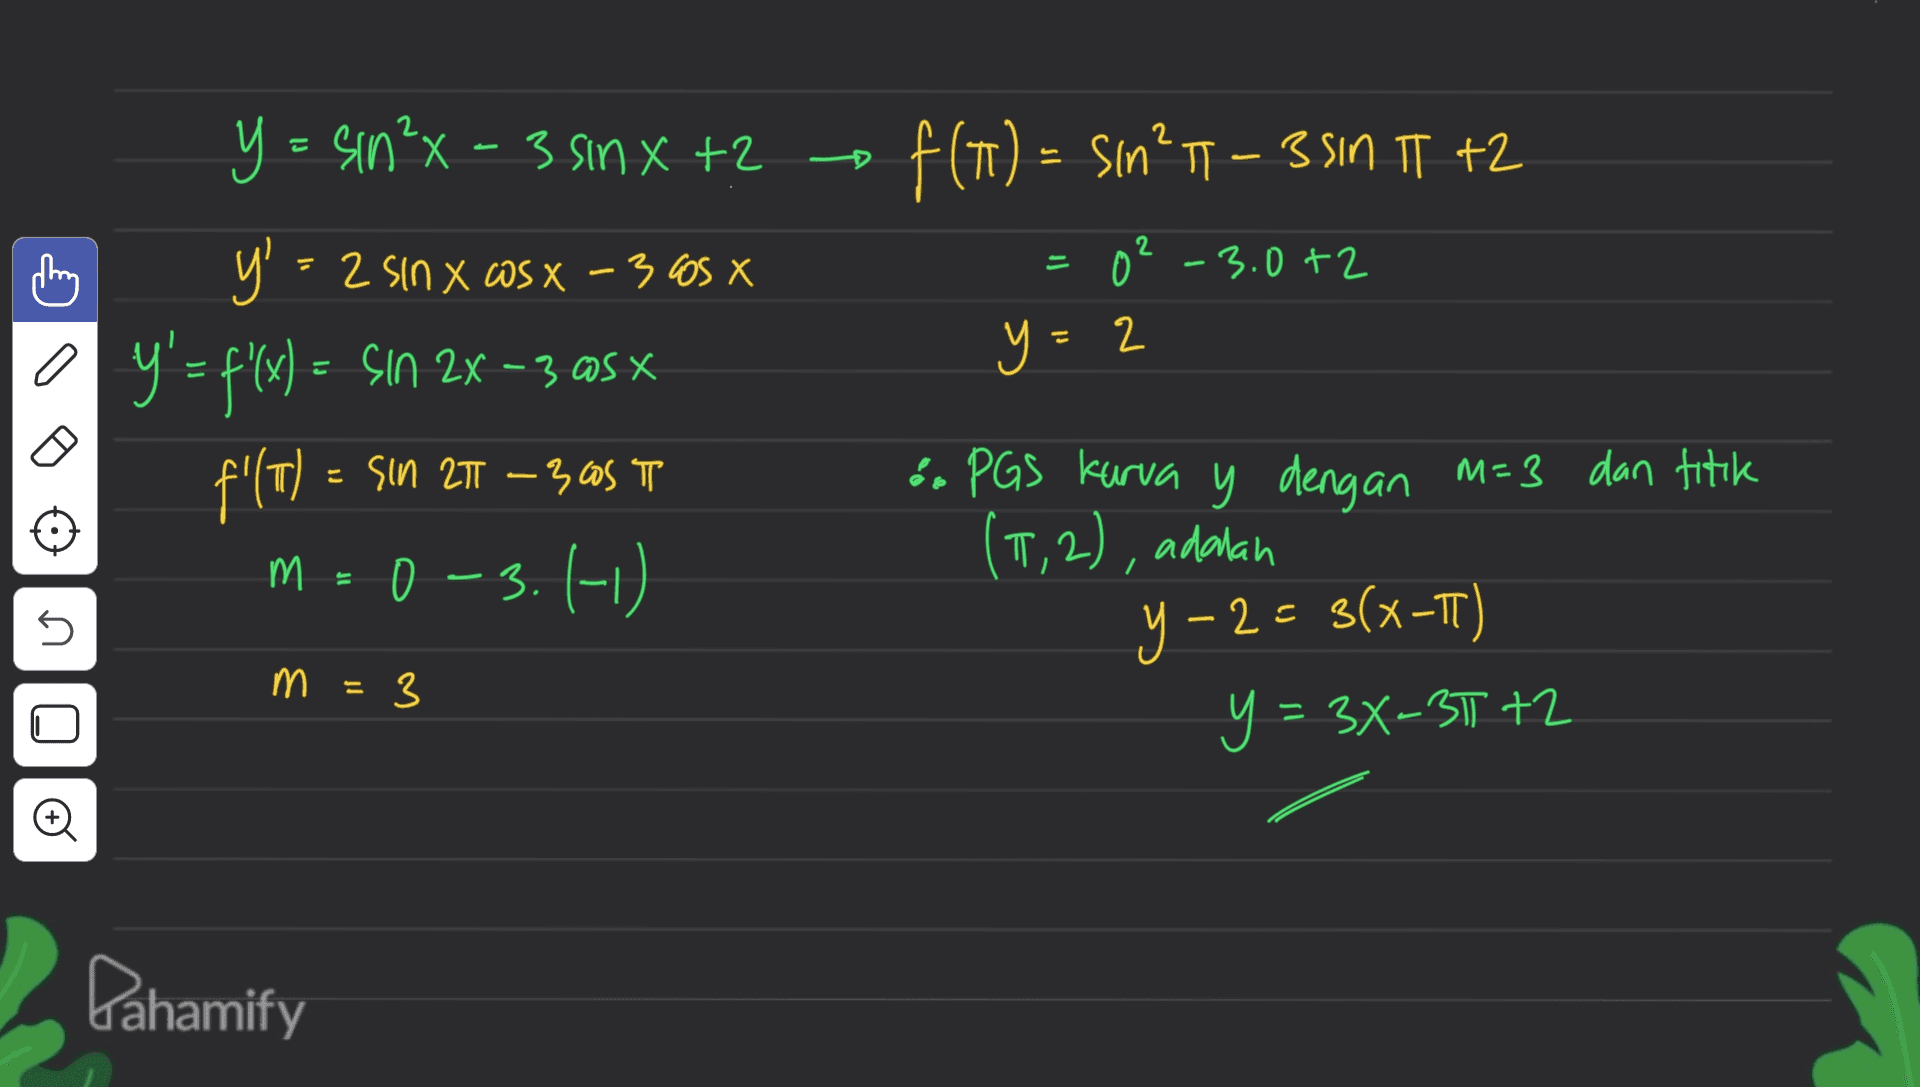 y = sin²x - 3 sin x +2 → f(π) = sin²π - 3 sin π +2
y' = 2 sin x cos x - 3 cos x
= 0² - 3.0 +2
y = 2
y' = f'(x) = sin 2x - 3 cos x
f'(π) = sin 2π - 3 cos π
m = 0 - 3.(-1)
m = 3
∴ PGS kurva y dengan m=3 dan titik
(π,2), adalah
y - 2 = 3(x-π)
y = 3x-3π+2
Pahamify